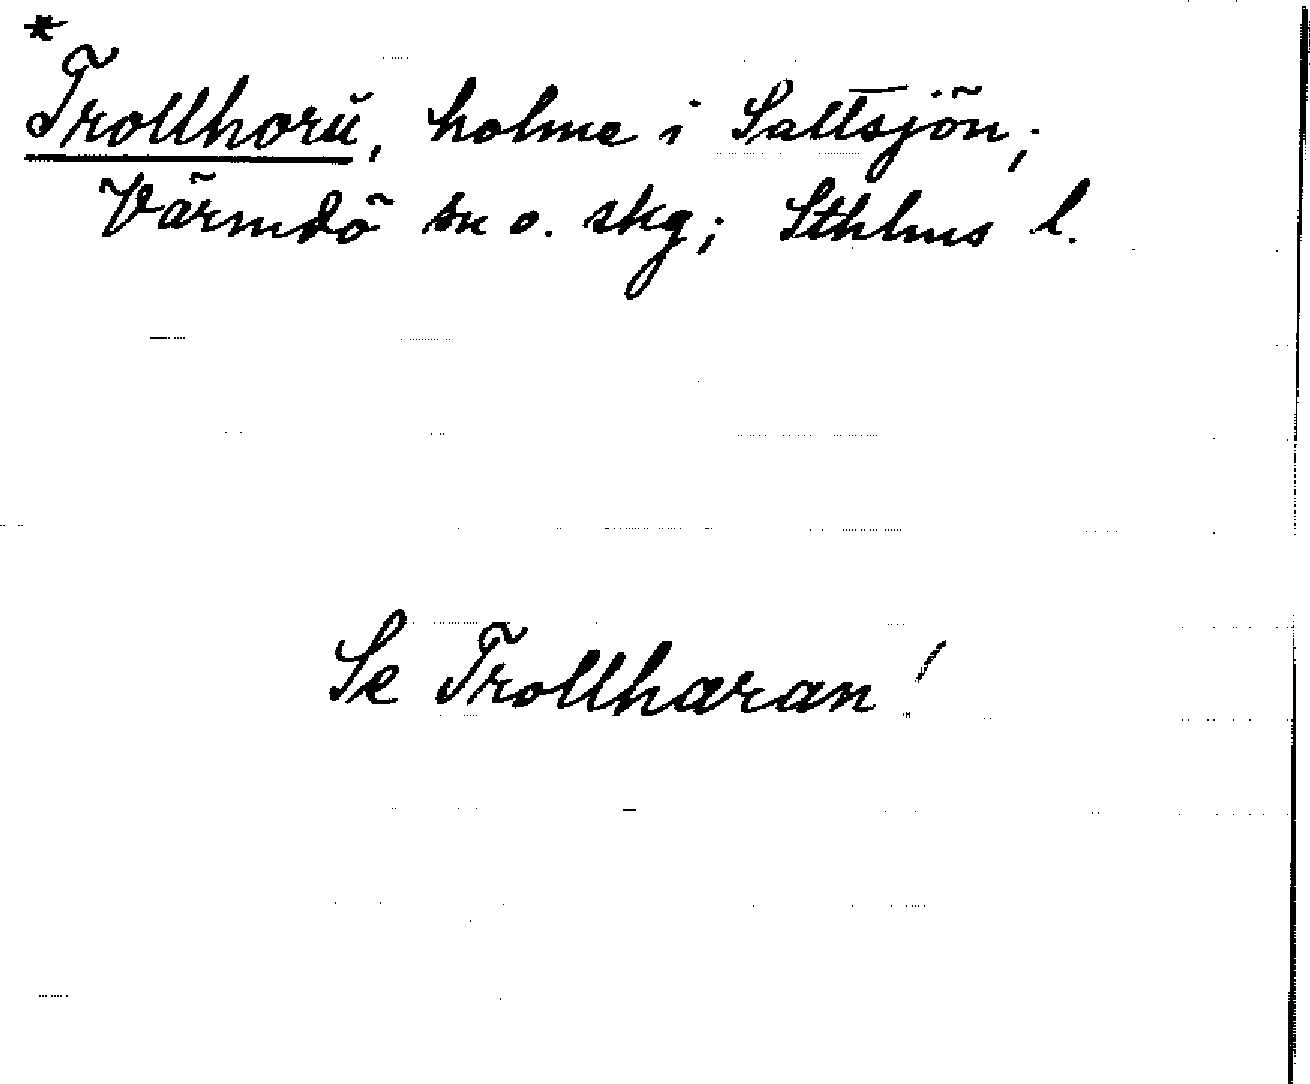 *
Trollhorŭ, holme i Saltsjön;
Värmdö sn o. skg; Sthlms l.
Se Trollharan!